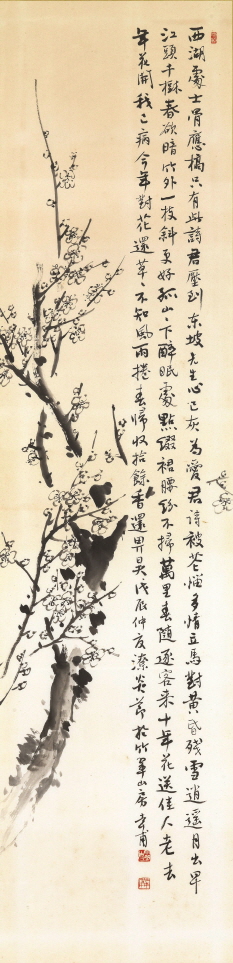 西湖處士骨應槁只有此詩君壓到东坡先生心已灰為愛君詩被花惱多情立馬對黃昏殘雪逍遥月出早
江頭千樹春欲暗竹外一枝斜更好孤山々下醉眠處點綴裙腰紛不掃萬里春隨逐客來十年花送佳人老去
年花開我已病今年對花還草々不知風雨捲春歸收拾餘香還畀昊戊辰仲夏